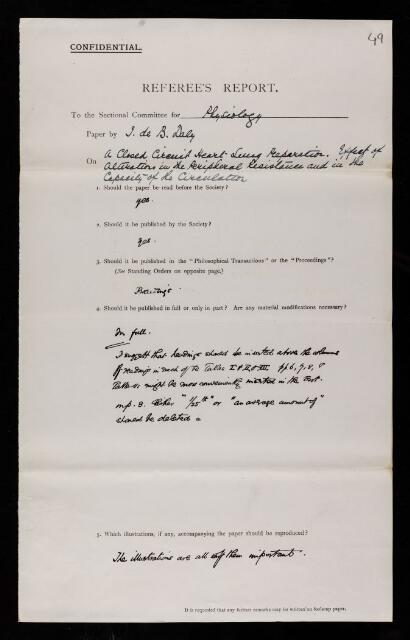 49
CONFIDENTIAL.
REFEREE'S REPORT.
To the Sectional Committee for Physiology
Paper by I. de B. Daly
On A Closed Circuit Heart Lung Preparation. Effect of
Alterations in the Peripheral Resistance and in the
Capacity of the Circulation
1. Should the paper be read before the Society?
yes.
2. Should it be published by the Society?
yes.
3. Should it be published in the "Philosophical Transactions" or the "Proceedings"?
(See Standing Orders on opposite page.)
Proceedings
4. Should it be published in full or only in part? Are any material modifications necessary?
In full.
I suggest that headings should be inserted above the columns
of readings in each of the Tables I to VIII pp 6, 7, 8,
Table might be more conveniently inserted in the text.
on p. 8. Either "1/25th" or "an average amount of"
should be deleted
5. Which illustrations, if any, accompanying the paper should be reproduced?
The illustrations are all of them important.
It is requested that any further remarks may be written on foolscap paper.